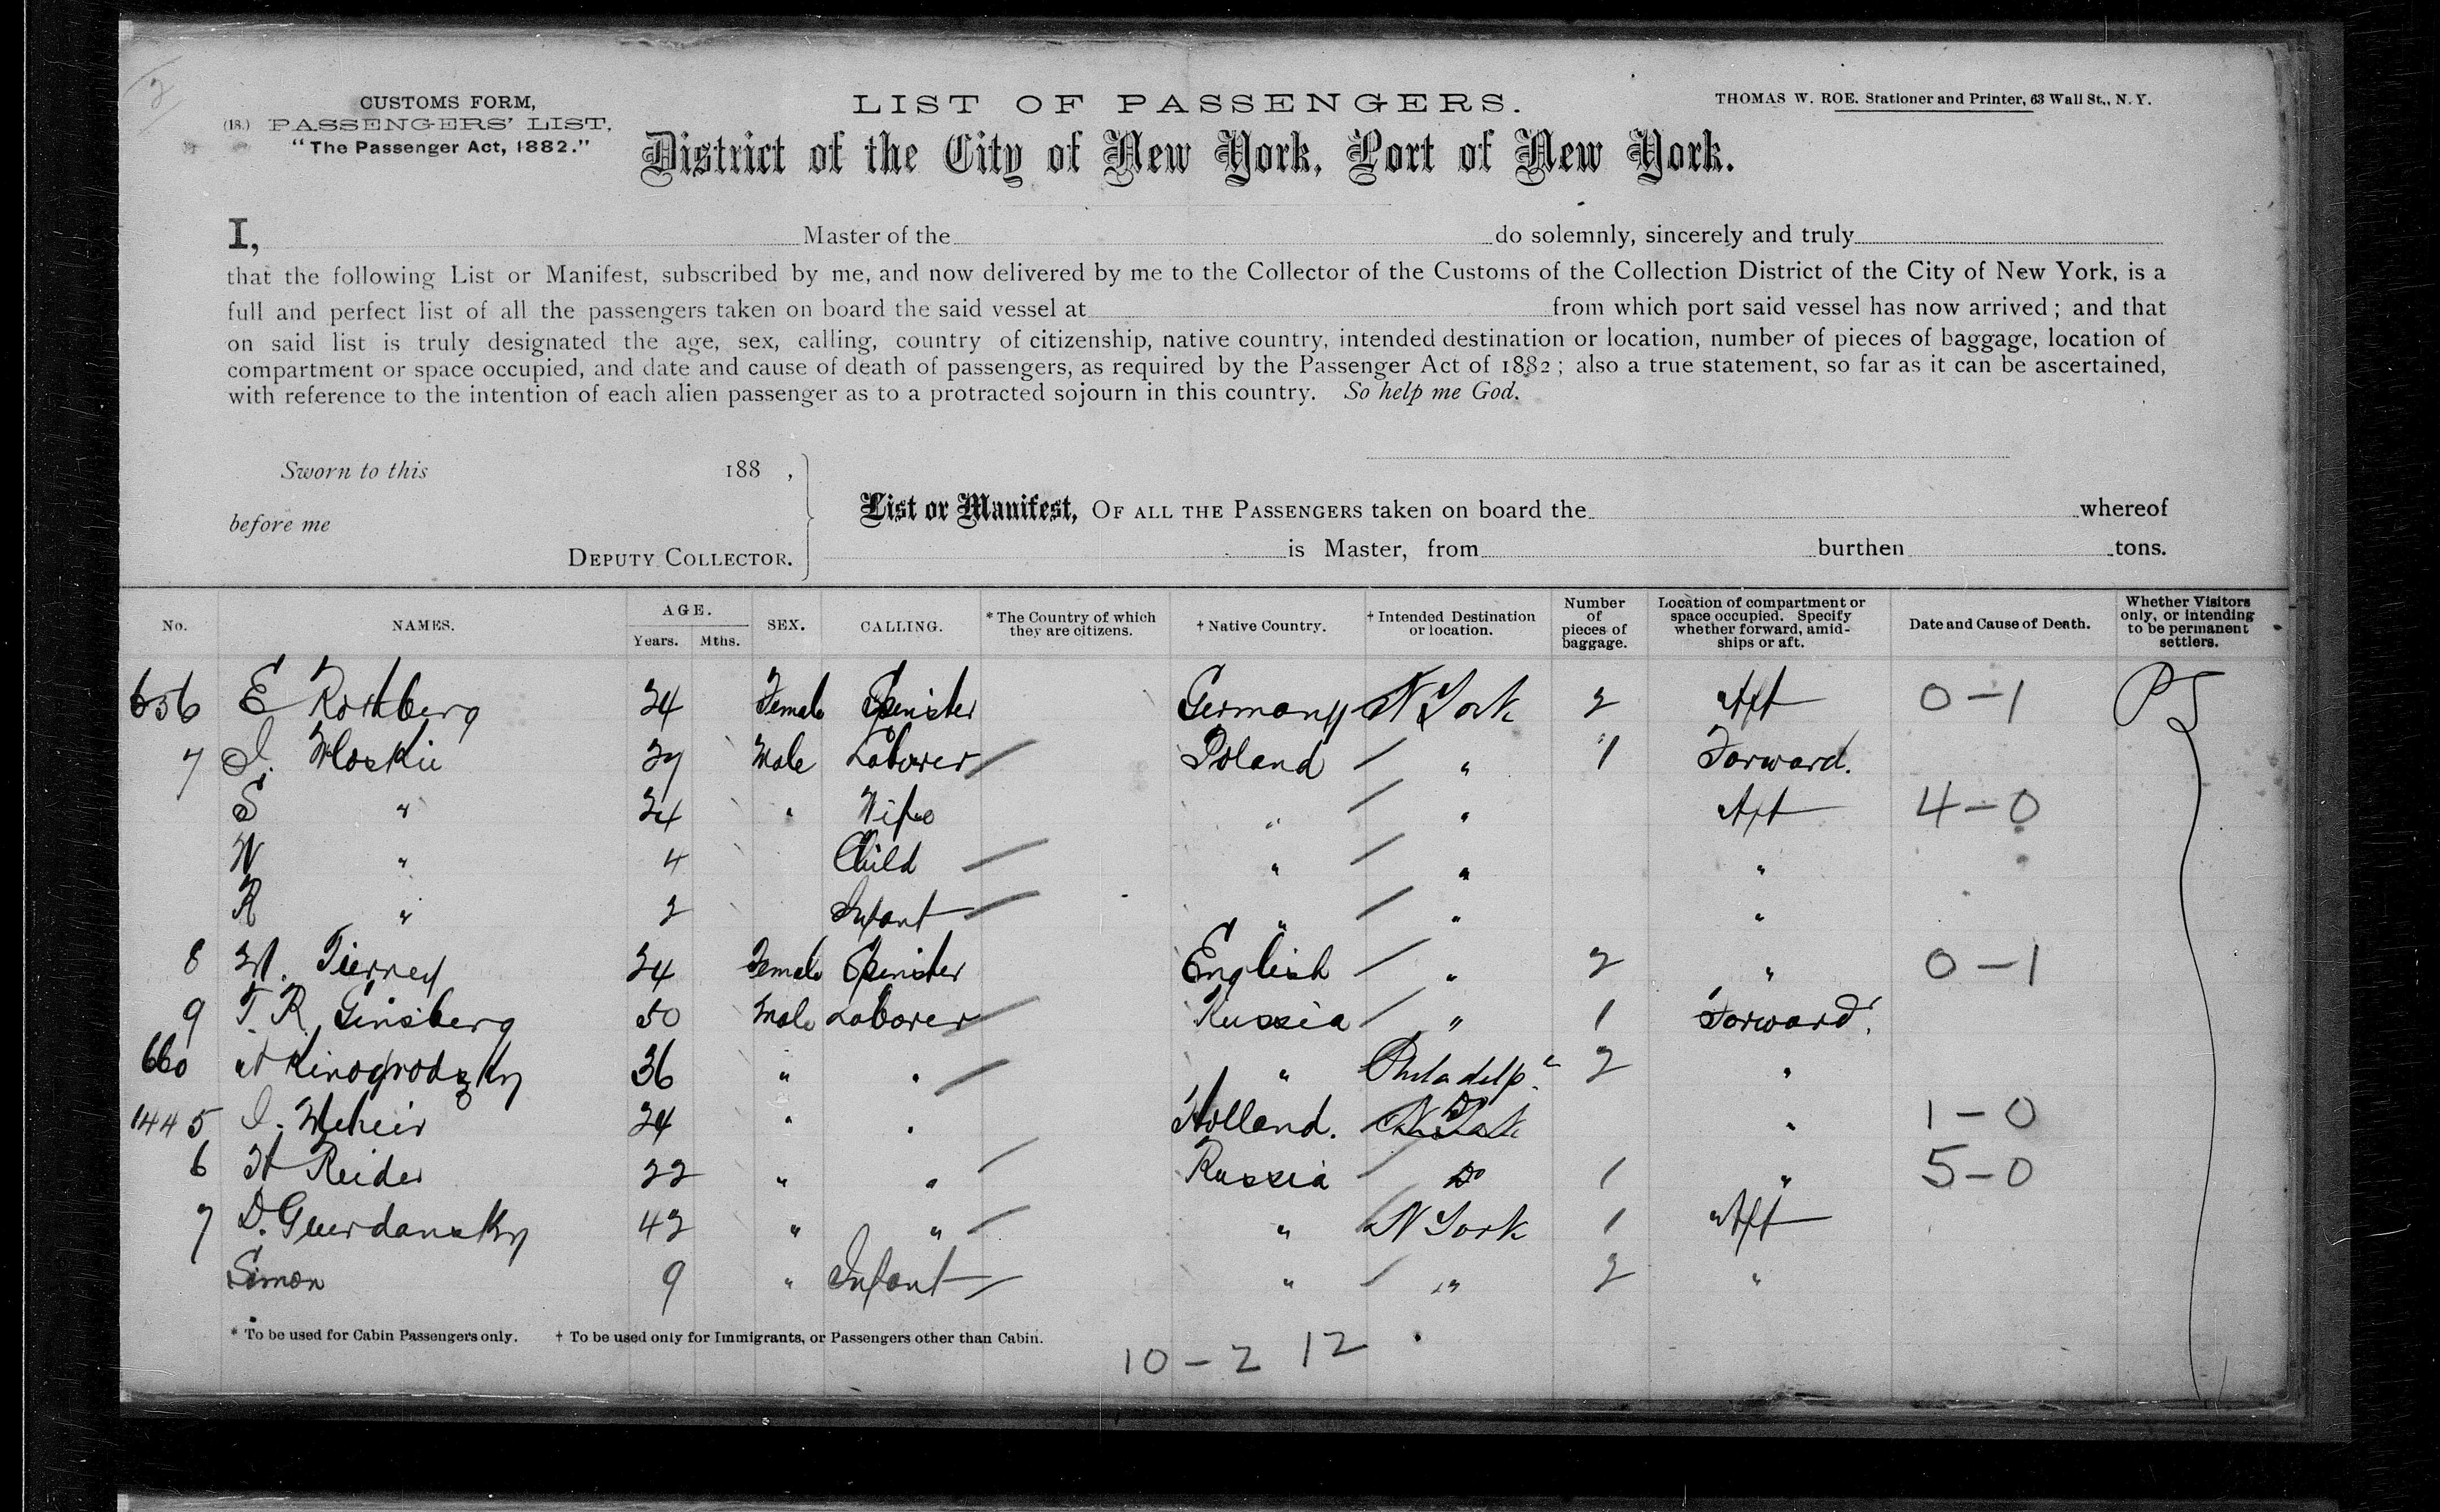 2
CUSTOMS FORM,
(18.) PASSENGERS' LIST,
"The Passenger Act, 1882."
LIST OF PASSENGERS.
THOMAS W. ROE, Stationer and Printer, 63 Wall St., N. Y.
District of the City of New York, Port of New York.
I, Master of the do solemnly, sincerely and truly
that the following List or Manifest, subscribed by me, and now delivered by me to the Collector of the Customs of the Collection District of the City of New York, is a
full and perfect list of all the passengers taken on board the said vessel at from which port said vessel has now arrived; and that
on said list is truly designated the age, sex, calling, country of citizenship, native country, intended destination or location, number of pieces of baggage, location of
compartment or space occupied, and date and cause of death of passengers, as required by the Passenger Act of 1882; also a true statement, so far as it can be ascertained,
with reference to the intention of each alien passenger as to a protracted sojourn in this country. So help me God.
Sworn to this 188 ,
before me
DEPUTY COLLECTOR.
List or Manifest, OF ALL THE PASSENGERS taken on board the whereof
is Master, from burthen tons.
No. NAMES. AGE. Years. Mths. SEX. CALLING. * The Country of which they are citizens. † Native Country. † Intended Destination or location. Number of pieces of baggage. Location of compartment or space occupied. Specify whether forward, amidships or aft. Date and Cause of Death. Whether Visitors only, or intending to be permanent settlers.
656 E Rothberg 24 Female Spinster Germany N York 2 Aft 0-1 PS
7 I. 27 Male Laborer Poland " 1 Forward.
S " 24 " Wife " " Aft 4-0
W " 4 Child " " "
R " 2 Infant " " "
8 M. Tierney 24 Female Spinster English " 2 " 0-1
9 T. R. Ginsberg 50 Male Laborer Russia " 1 Forward.
660 A Kinogrodzky 36 " " " Philadelp. 2 "
1445 I. 24 " " Holland. N York Do " 1-0
6 H Reider 22 " " Russia Do 1 " 5-0
7 D. Guerdansky 42 " " " N York 1 Aft
Simon 9 " Infant " " 2 "
* To be used for Cabin Passengers only. † To be used only for Immigrants, or Passengers other than Cabin.
10-2 12